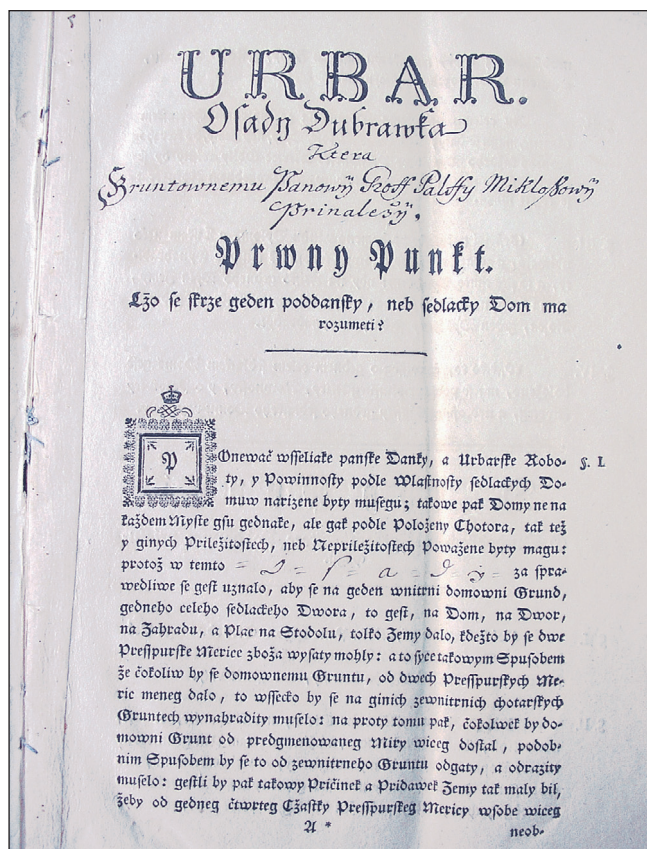 URBAR.
Osady Dubrawka
Ktera
Gruntownemu Panowÿ Groff Palffy Miklossowÿ
Prinaležÿ.
Prwny Punkt.
Cžo se skrze geden poddansky, neb sedlacky Dom ma
rozumeti?
POnewač wsseliake panske Danky, a Urbarske Robo-
ty, y Powinnosty podle Wlastnosty sedlackych Do-
muw narizene byty musegu; takowe pak Domy ne na
každem Myste gsu gednake, ale gak podle Položeny Chotora, tak tež
y ginych Priležitostech, neb Nepriležitostech Powažene byty magu:
protož w temto = O = s = a = d = y = za spra-
wedliwe se gest uznalo, aby se na geden wnitrni domowni Grund,
gedneho celeho sedlackeho Dwora, to gest, na Dom, na Dwor,
na Zahradu, a Plac na Stodolu, tolko Zemy dalo, kdežto by se dwe
Presspurske Merice zboža wysaty mohly: a to syce takowym Spusobem
že čokoliw by se domownemu Gruntu, od dwech Presspurskych Me-
ric meneg dalo, to wssecko by se na ginich zewnitrnich chotarskych
Gruntech wynahradity muselo: na proty tomu pak, čokolwek by do-
mowni Grunt od predgmenowaneg Miry wiceg dostal, podob-
nim Spusobem by se to od zewnitrneho Gruntu odgaty, a odrazity
muselo: gestli by pak takowy Pričinek a Pridawek Zemy tak maly bil,
žeby od gedneg čtwrteg Cžastky Presspurskeg Mericy wsobe wiceg
§. I.
A *
neob-